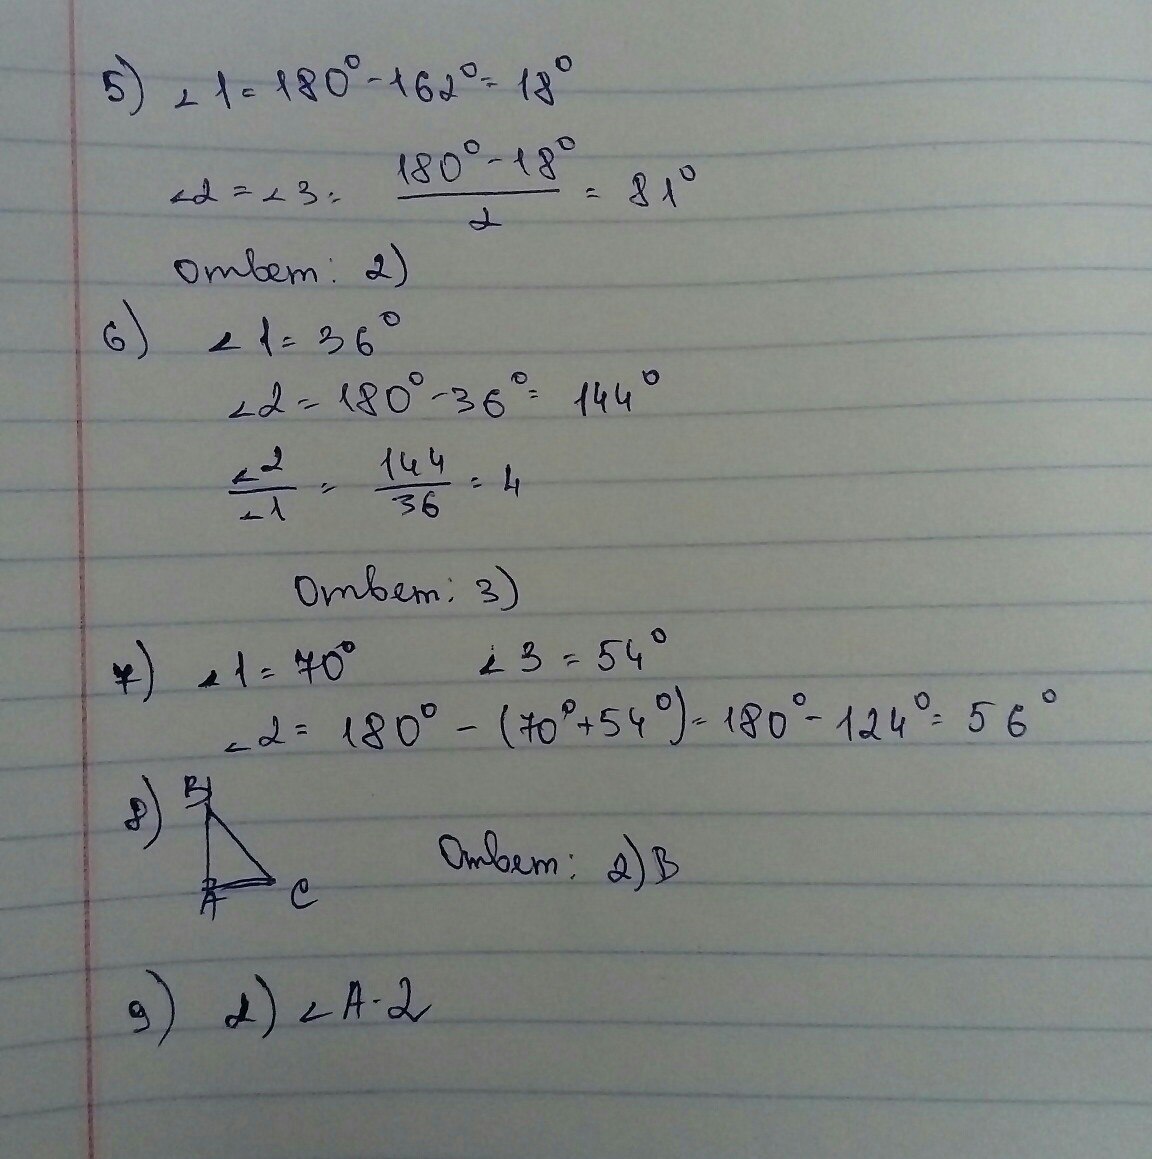 5) ∠1 = 180° - 162° = 18°
∠2 = ∠3 = (180° - 18°)/2 = 81°
Ответ: 2)
6) ∠1 = 36°
∠2 = 180° - 36° = 144°
∠2/∠1 = 144/36 = 4
Ответ: 3)
7) ∠1 = 70° ∠3 = 54°
∠2 = 180° - (70° + 54°) = 180° - 124° = 56°
8) B A C Ответ: 2) B
9) 2) ∠A - 2